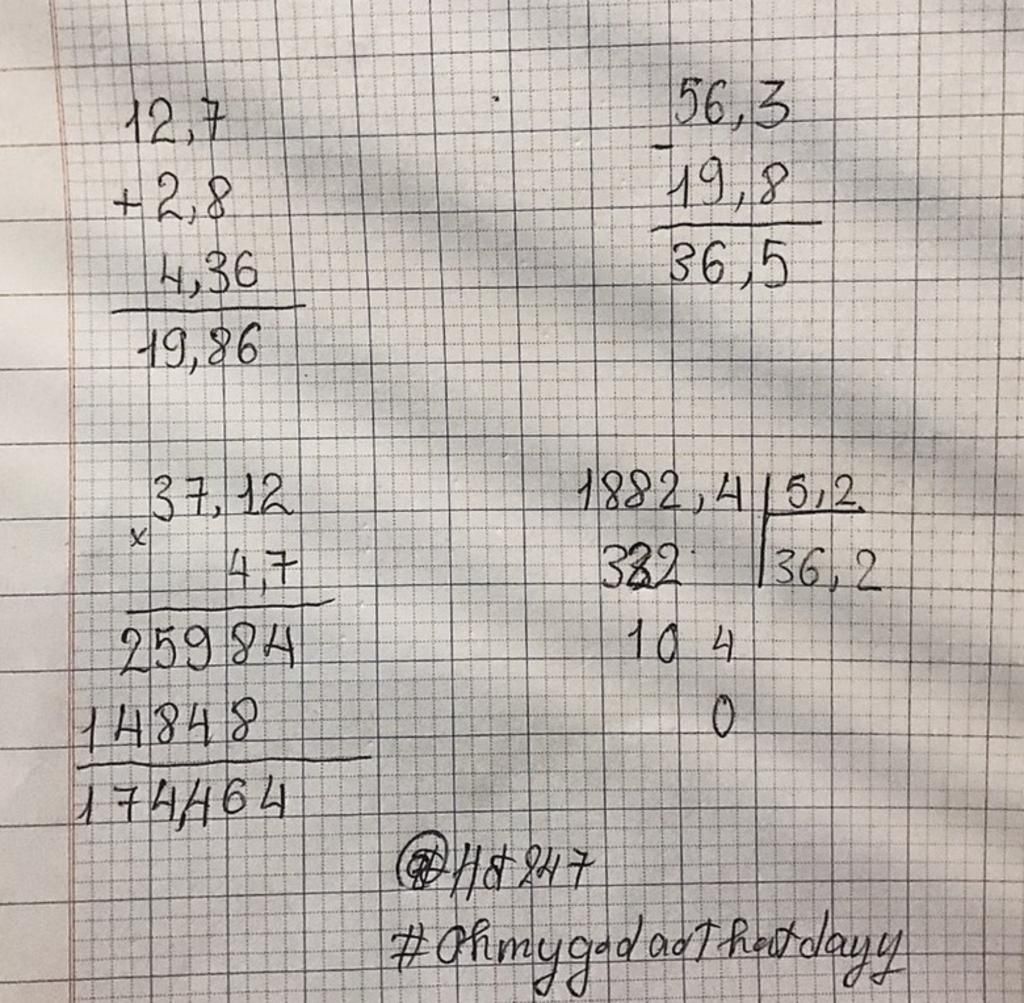 12,7
+ 2,8
4,36
19,86
56,3
-
19,8
36,5
37,12
x
4,7
25984
14848
174,464
1882,4 | 5,2
332 | 36,2
10 4
0
Hd 247
#OhmygodaoThatdayy